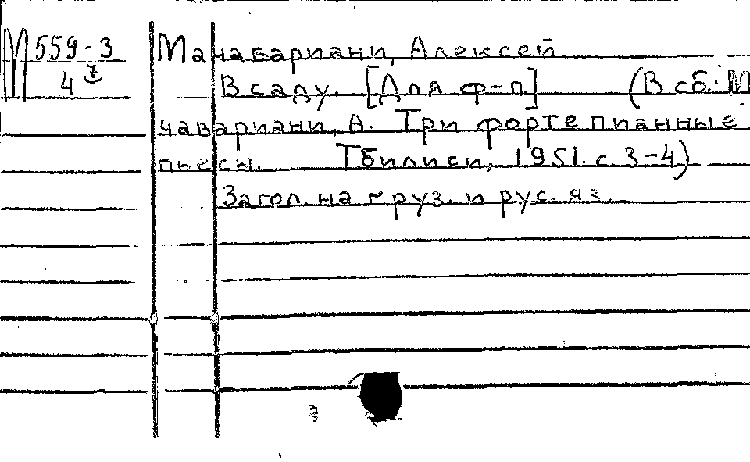 М 559-3 Мачавариани, Алексей
4 В саду. [Для ф-п] (В сб.: М
чавариани, А. Три фортепианные
пьесы. Тбилиси, 1951. с. 3-4)
Загол. на груз. и рус. яз.